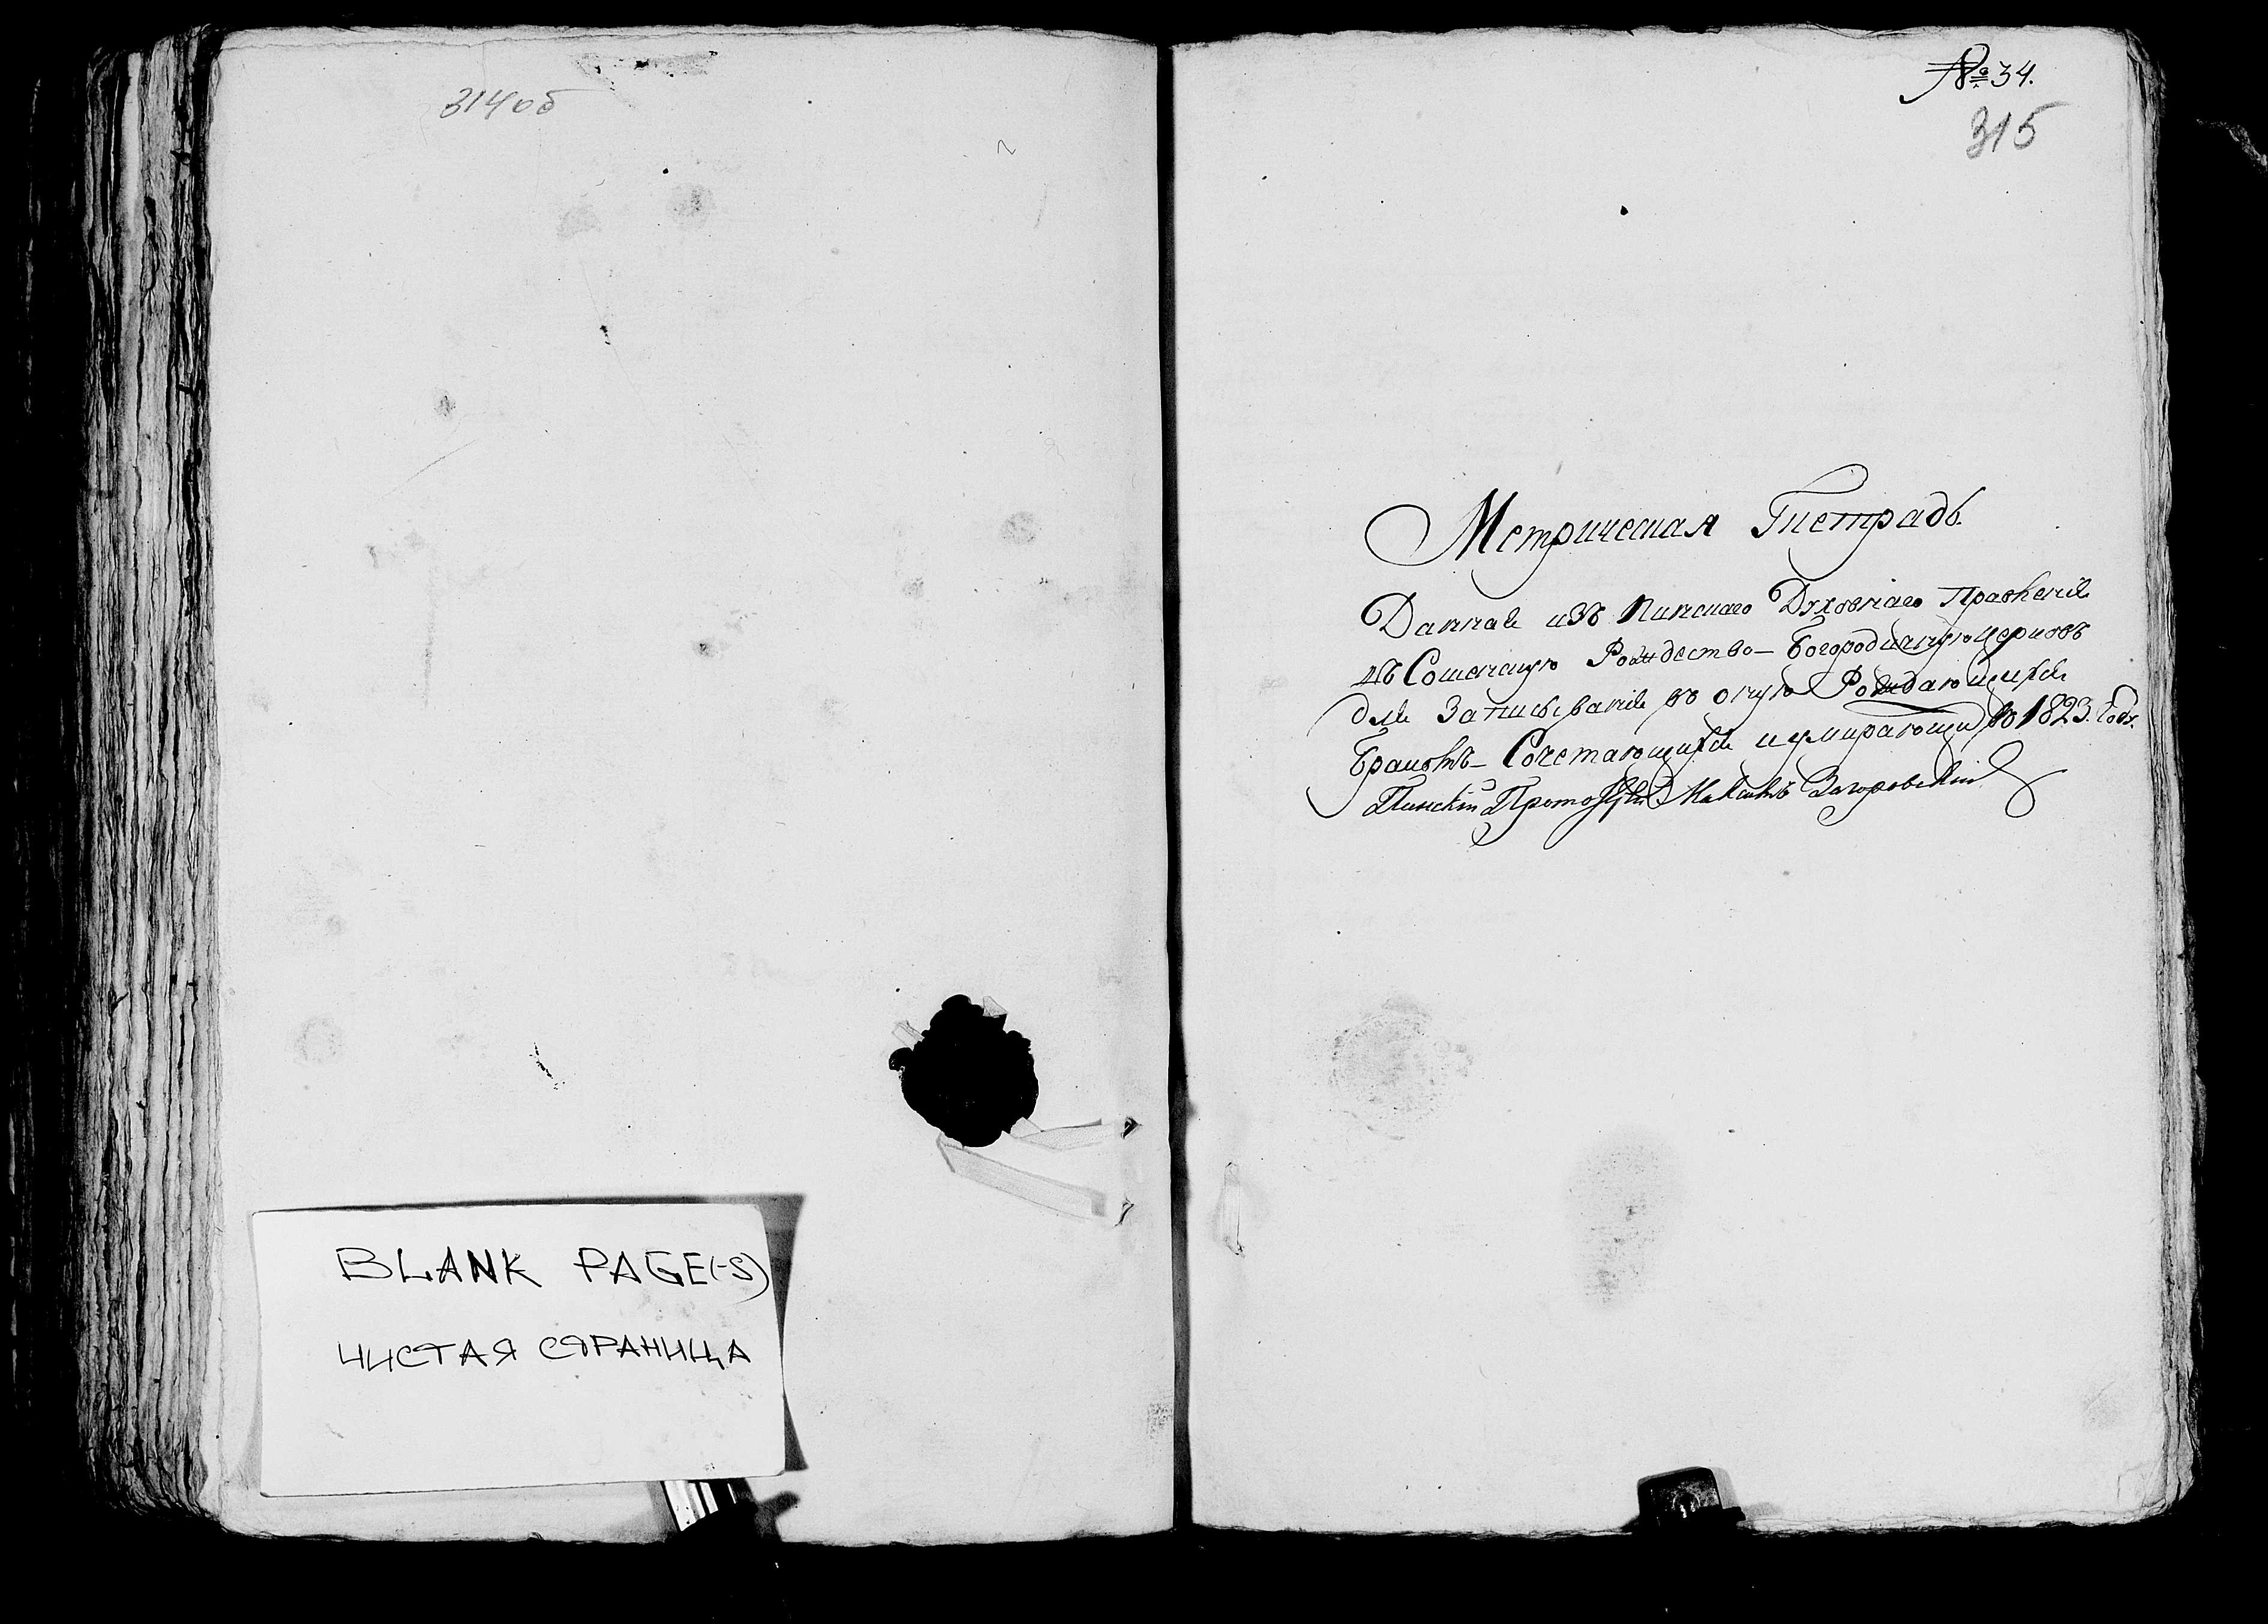 314об
BLANK PAGE(-S)
ЧИСТАЯ СТРАНИЦА
№ 34.
315
Метрическая Тетрадь
Данная изъ Пинскаго Духовнаго Правленія
въ Сошенскую Рождество-Богородичную церковь
для Записыванія въ оную Рождающихся
Бракомъ-Сочетающихся и умирающи въ 1823. Году.
Пинскій Максимъ Загоровскій